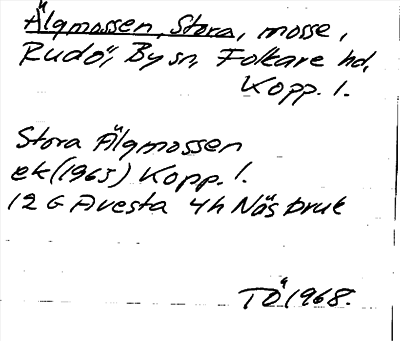 Älgmossen, Stora, mosse,
Rudö, By sn, Folkare hd,
Kopp. l.
Stora Älgmossen
ek (1965) Kopp. l.
12 G Avesta 4h Näs bruk
TÖ 1968.